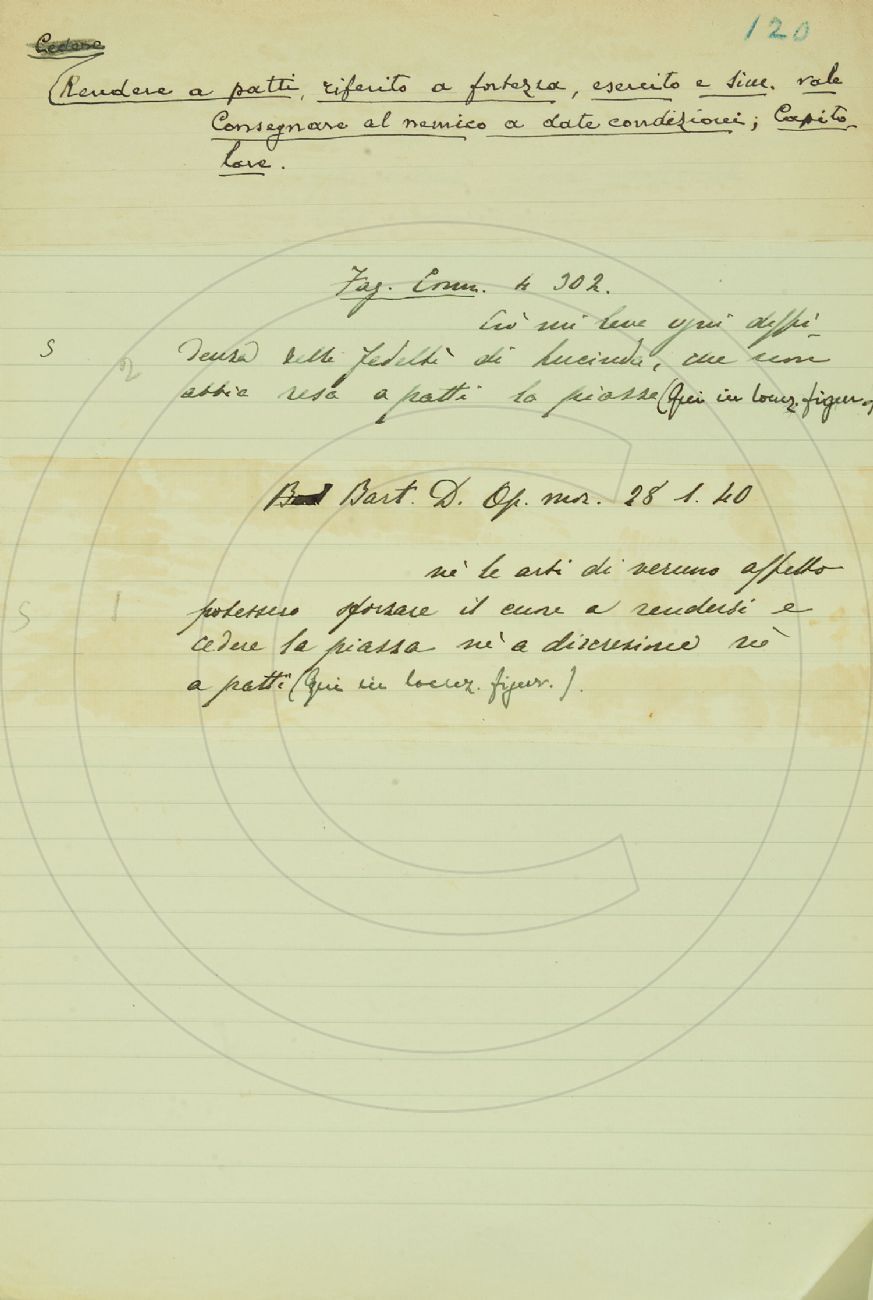 120
Cedere
Rendere a patti, riferito a fortezza, esercito e sim. vale
Consegnare al nemico a date condizioni; Capito-
lare.
Fag. Comm. 4 302.
Ciò mi leva ogni diffi-
S 2 denza della fedeltà di Lucinda, che non
abbia resa a patti la piazza (Qui in locuz. figur.)
Bart. D. Op. mor. 28 1. 40
nè le arti di veruno affetto
S 1 potessero sforzare il cuore a rendersi e
cedere la piazza nè a discrezione nè
a patti (Qui in locuz. figur.).